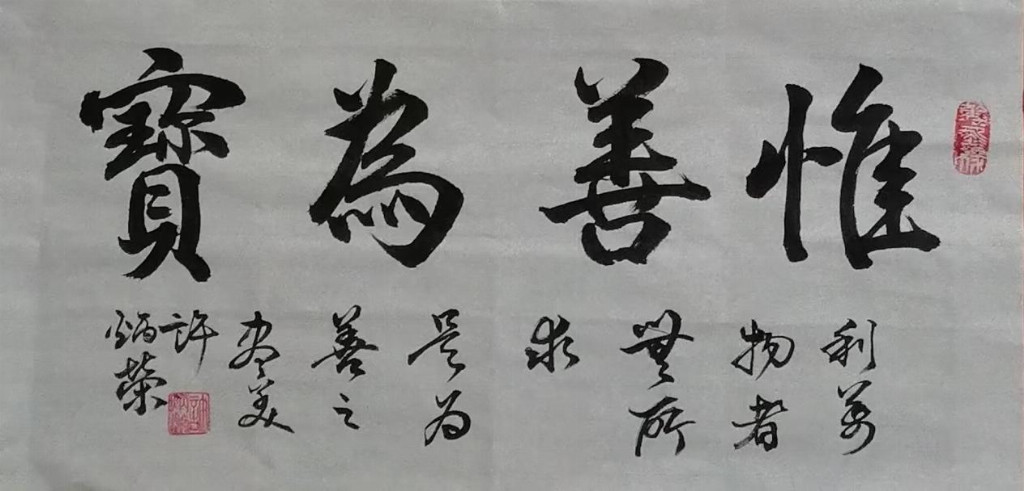 惟善為寶
利萬
物者
無所
求
是为
善之
盡美
許
炳榮